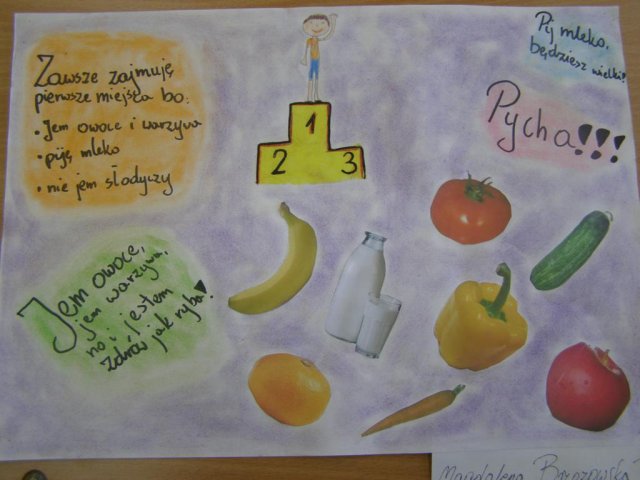 Zawsze zajmuję
pierwsze miejsca bo:
• Jem owoce i warzywa
• piję mleko
• nie jem słodyczy
1
2 3
Pij mleko,
będziesz wielki!
Pycha!!!
Jem owoce,
jem warzywa,
no i jestem
zdrów jak ryba!
Magdalena